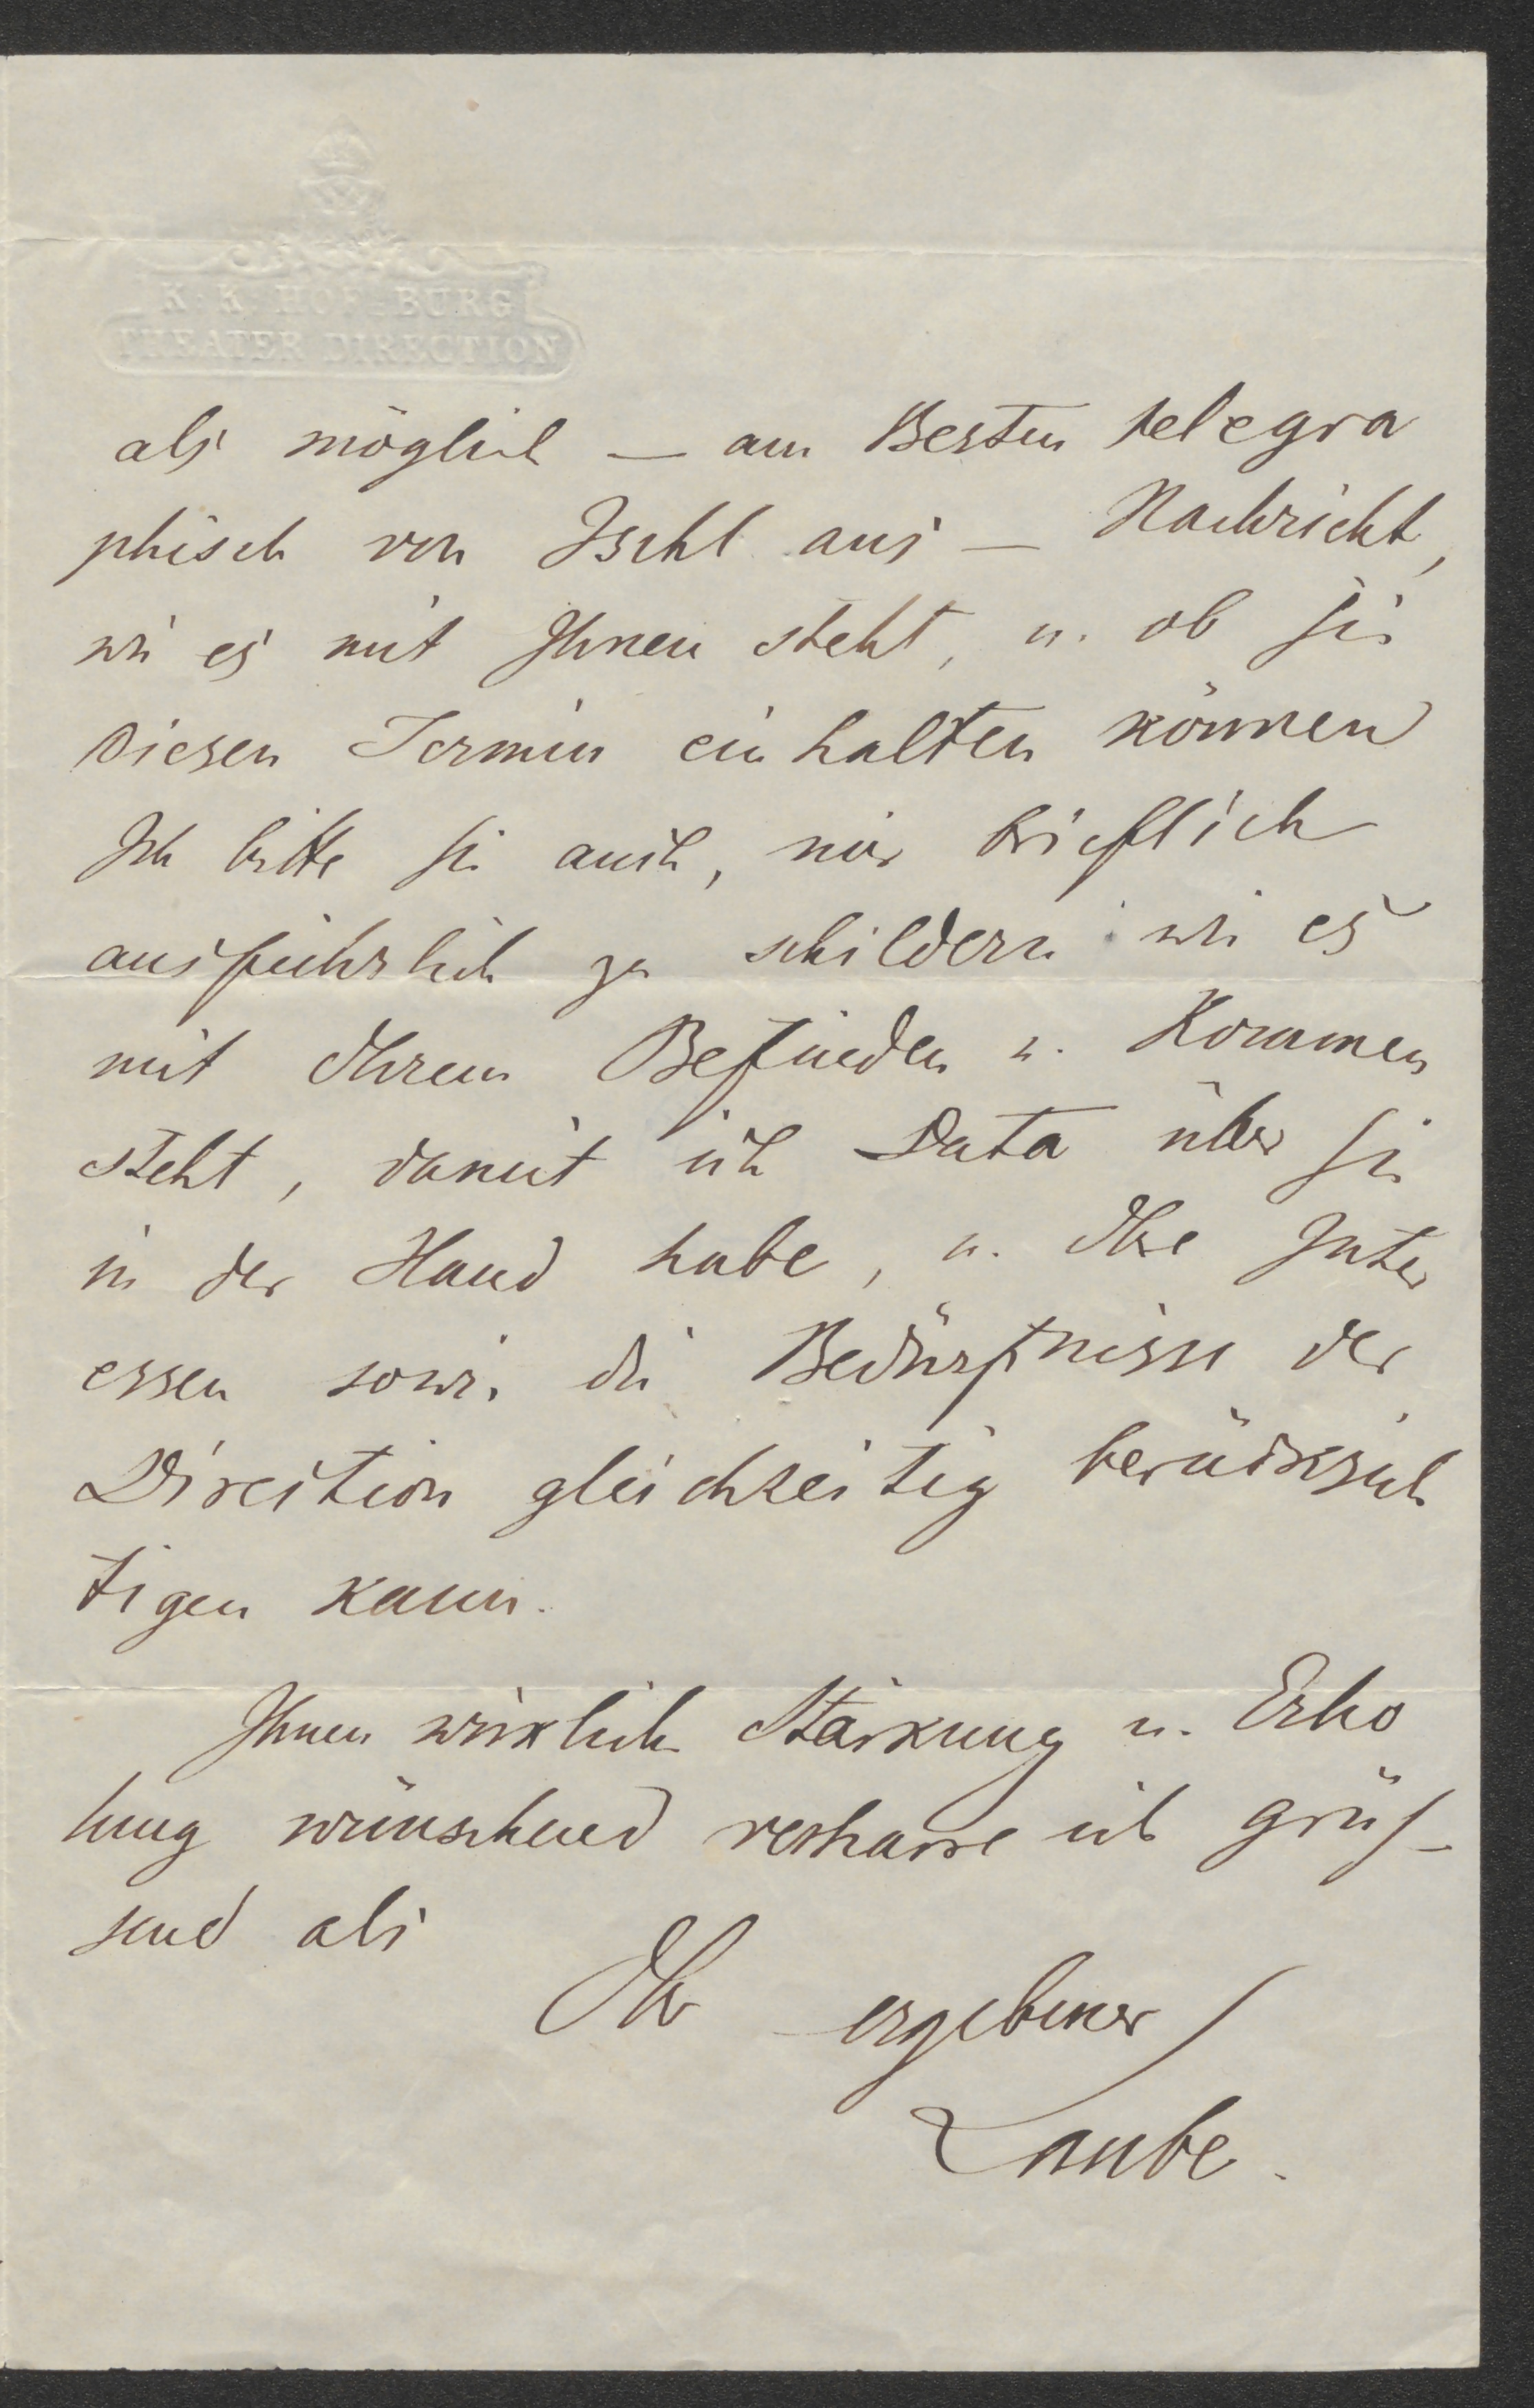 K. K. HOF-BURG
THEATER DIRECTION
als möglich — am Besten telegra
phisch von Ischl aus — Nachricht,
wie es mit Ihnen steht, u. ob sie
diesen Termin einhalten können
Ich bitte sie auch, mir brieflich
ausführlich zu schildern wie es
mit Ihrem Befinden u. Kommen
steht, damit ich Data über sie
in der Hand habe, u. Ihre Inter
essen sowie die Bedürfnisse der
Direction gleichzeitig berücksich
tigen kann.
Ihnen wirklich Stärkung u. Erho
lung wünschend verharre ich grüs-
send als
Ihr ergebener
Laube.